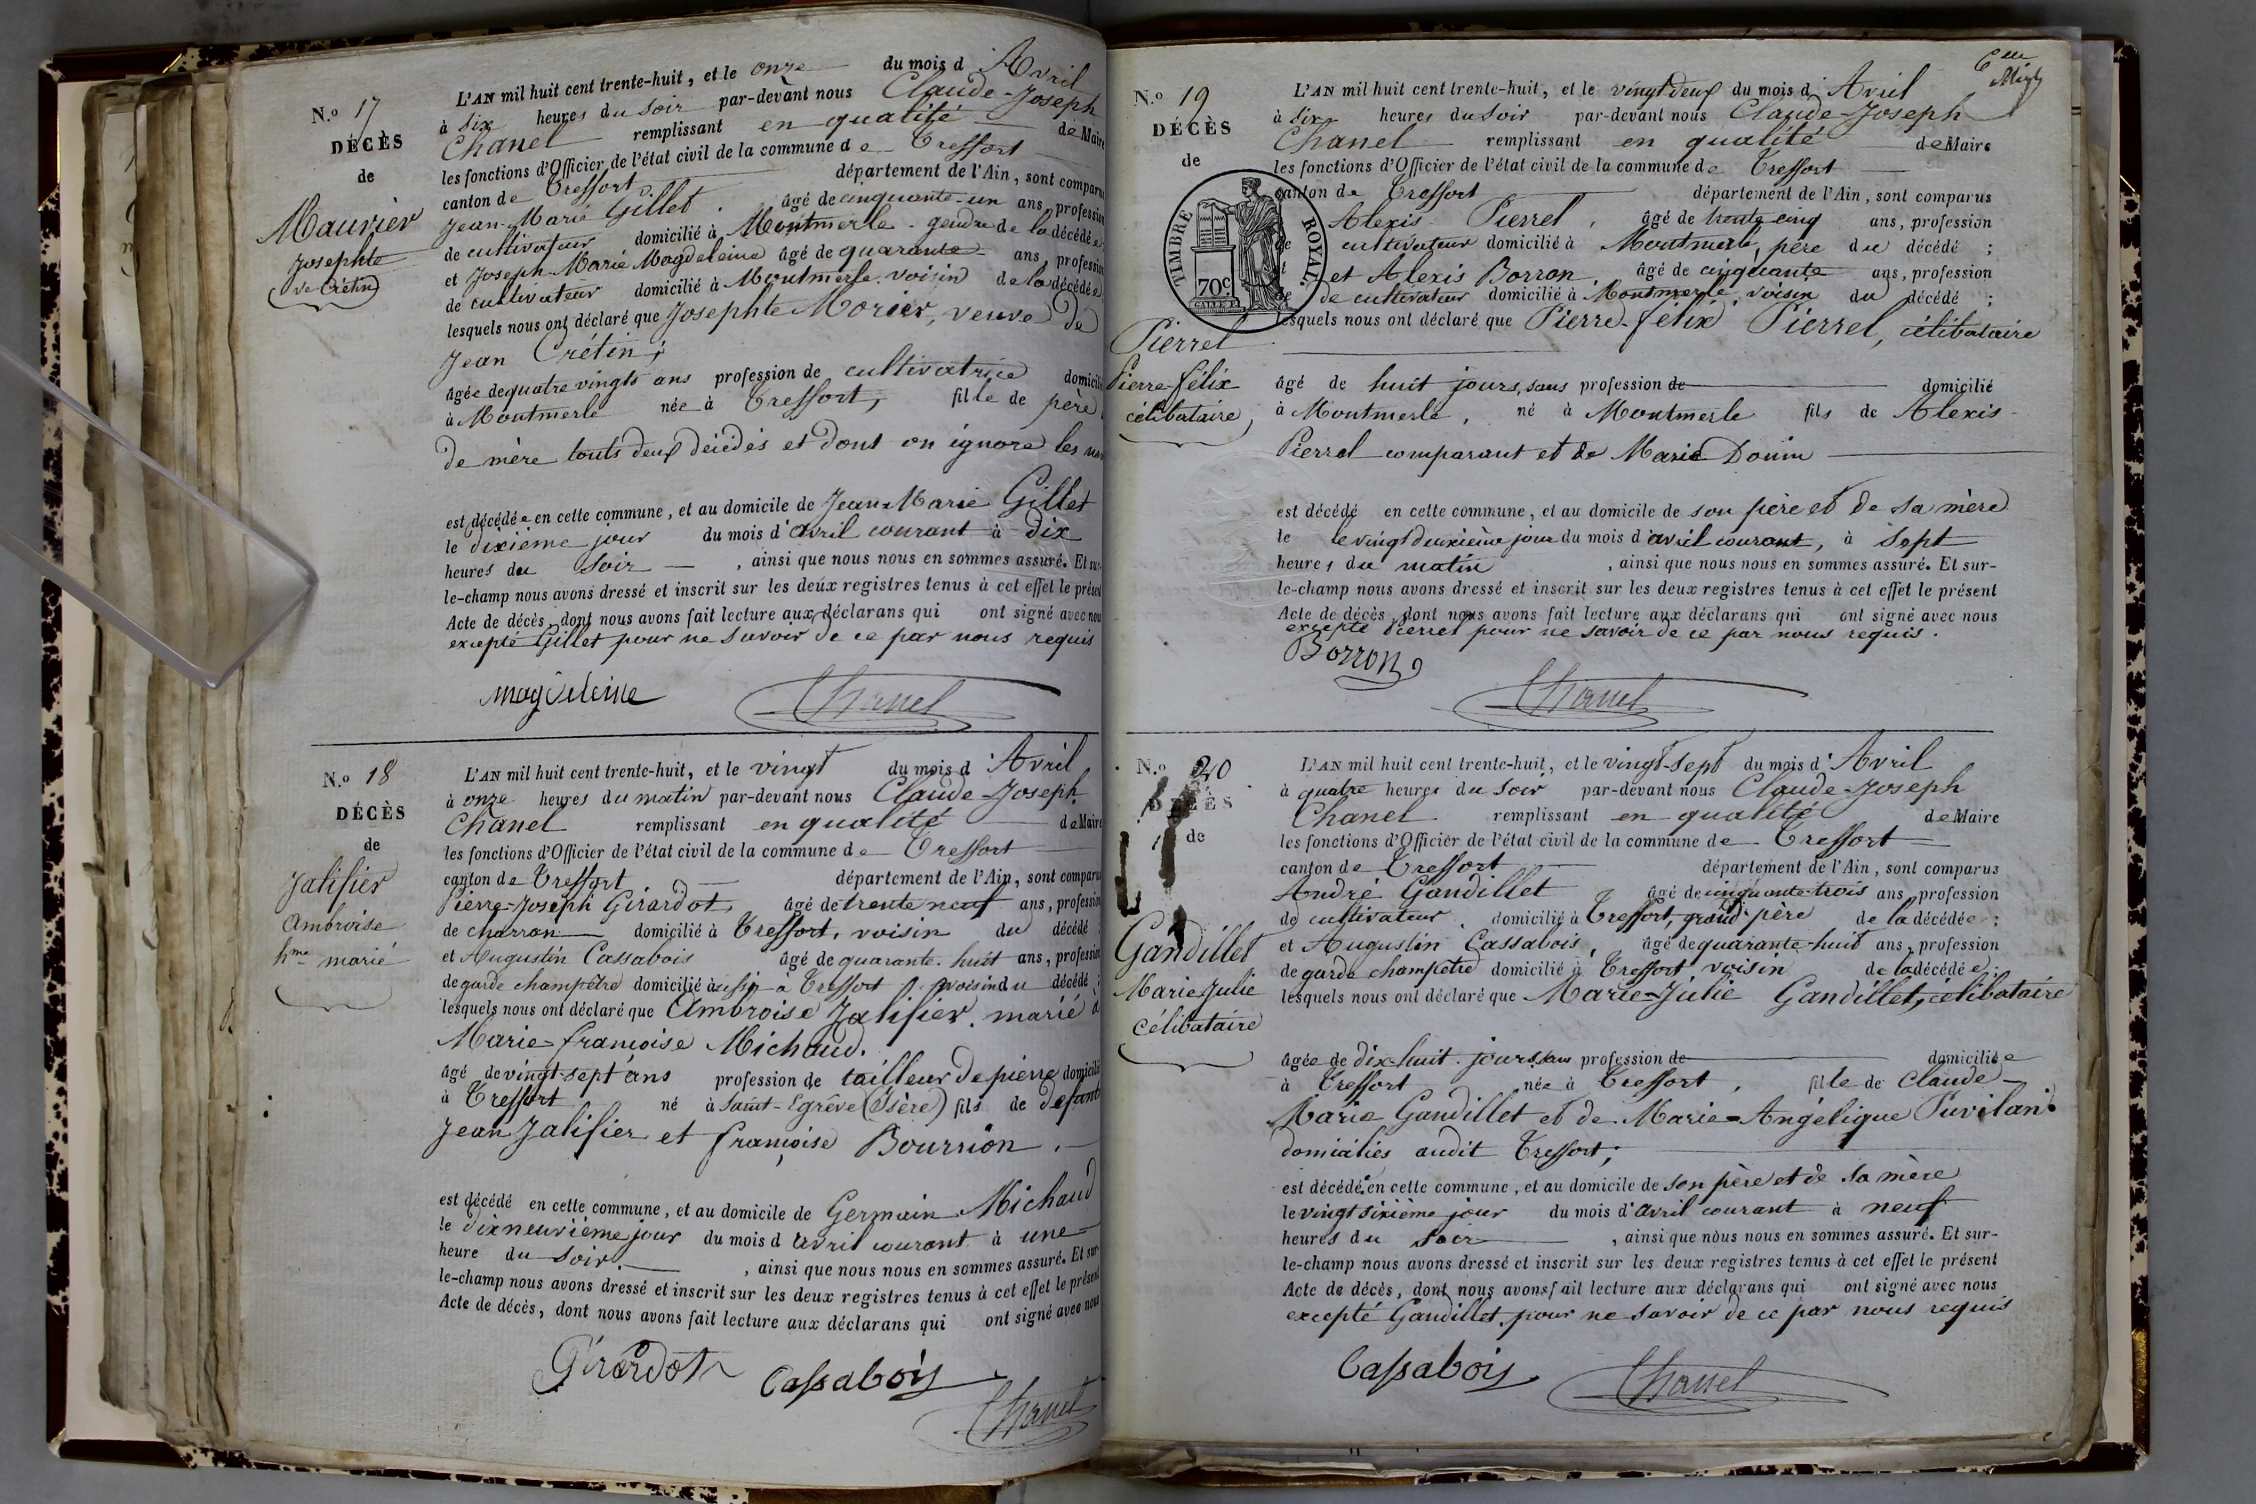 N.o 17
DÉCÈS
de
Mauvier
Josephte
ve Crétin
L'AN mil huit cent trente-huit, et le onze du mois d'Avril
à six heures du soir par-devant nous Claude-Joseph
Chanel remplissant en qualité de Maire
les fonctions d'Officier de l'état civil de la commune de Treffort
canton de Treffort département de l'Ain, sont comparus
Jean-Marie Gillet, âgé de cinquante-un ans, profession
de cultivateur domicilié à Montmerle gendre de la décédée
et Joseph-Marie Magdeleine âgé de quarante ans, profession
de cultivateur domicilié à Montmerle voisin de la décédée
lesquels nous ont déclaré que Josephte Morier, veuve de
Jean Crétin;
âgée de quatre vingts ans profession de cultivatrice domicilié
à Montmerle née à Treffort, fille de père
de mère touts deux décédés et dont on ignore les
est décédée en cette commune, et au domicile de Jean-Marie Gillet
le dixième jour du mois d'avril courant à dix
heures du soir, ainsi que nous nous en sommes assuré. Et sur-
le-champ nous avons dressé et inscrit sur les deux registres tenus à cet effet le présent
Acte de décès, dont nous avons fait lecture aux déclarans qui ont signé avec nous
excepté Gillet pour ne savoir de ce par nous requis
magdeleine Chanel
N.o 18
DÉCÈS
de
Jalifier
Ambroise
hme marié
L'AN mil huit cent trente-huit, et le vingt du mois d'Avril
à onze heures du matin par-devant nous Claude-Joseph
Chanel remplissant en qualité de Maire
les fonctions d'Officier de l'état civil de la commune de Treffort
canton de Treffort département de l'Ain, sont comparus
Pierre-Joseph Girardot, âgé de trente neuf ans, profession
de charron domicilié à Treffort, voisin du décédé;
et Augustin Cassabois âgé de quarante-huit ans, profession
de garde champêtre domicilié à Treffort voisin du décédé;
lesquels nous ont déclaré que Ambroise Jalifier, marié à
Marie-françoise Michaud.
âgé de vingt-sept ans profession de tailleur de pierre domicilié
à Treffort né à Saint-Egrève (Isère) fils de defunt
Jean Jalifier et françoise Bourrion.
est décédé en cette commune, et au domicile de Germain Michaud
le dixneuvième jour du mois d'avril courant à une
heure du soir, ainsi que nous nous en sommes assuré. Et sur-
le-champ nous avons dressé et inscrit sur les deux registres tenus à cet effet le présent
Acte de décès, dont nous avons fait lecture aux déclarans qui ont signé avec nous
Girardot Cassabois
Chanel
N.o 19
DÉCÈS
de
TIMBRE ROYAL.
70c.
Pierrel
Pierre-félix
célibataire
L'AN mil huit cent trente-huit, et le vingt deux du mois d'Avril
à six heures du soir par-devant nous Claude-Joseph
Chanel remplissant en qualité de Maire
les fonctions d'Officier de l'état civil de la commune de Treffort
canton de Treffort département de l'Ain, sont comparus
Alexis Pierrel, âgé de trente cinq ans, profession
de cultivateur domicilié à Montmerle, père du décédé;
et Alexis Borron, âgé de cinquante ans, profession
de cultivateur domicilié à Montmerle, voisin du décédé;
lesquels nous ont déclaré que Pierre-félix Pierrel, célibataire
âgé de huit jours, sans profession de domicilié
à Montmerle, né à Montmerle fils de Alexis
Pierrel comparant et de Marie Donin
est décédé en cette commune, et au domicile de son père et de sa mère
le le vingt deuxième jour du mois d'avril courant, à sept
heures du matin, ainsi que nous nous en sommes assuré. Et sur-
le-champ nous avons dressé et inscrit sur les deux registres tenus à cet effet le présent
Acte de décès, dont nous avons fait lecture aux déclarans qui ont signé avec nous
excepté Pierrel pour ne savoir de ce par nous requis.
Borron
Chanel
N.o 20
DÉCÈS
de
Gandillet
Marie Julie
célibataire
L'AN mil huit cent trente-huit, et le vingt-sept du mois d'Avril
à quatre heures du soir par-devant nous Claude-Joseph
Chanel remplissant en qualité de Maire
les fonctions d'Officier de l'état civil de la commune de Treffort
canton de Treffort département de l'Ain, sont comparus
André Gandillet âgé de cinquante-trois ans, profession
de cultivateur, domicilié à Treffort, grand-père de la décédée;
et Augustin Cassabois, âgé de quarante-huit ans, profession
de garde champêtre domicilié à Treffort voisin de la décédée;
lesquels nous ont déclaré que Marie-Julie Gandillet, célibataire
âgée de dix-huit jours sans profession de domiciliée
à Treffort née à Treffort, fille de Claude-
Marie Gandillet et de Marie-Angélique Puvilan
domiciliés audit Treffort;
est décédée en cette commune, et au domicile de son père et de sa mère
le vingt sixième jour du mois d'avril courant à neuf
heures du soir, ainsi que nous nous en sommes assuré. Et sur-
le-champ nous avons dressé et inscrit sur les deux registres tenus à cet effet le présent
Acte de décès, dont nous avons fait lecture aux déclarans qui ont signé avec nous
excepté Gandillet pour ne savoir de ce par nous requis
Cassabois Chanel